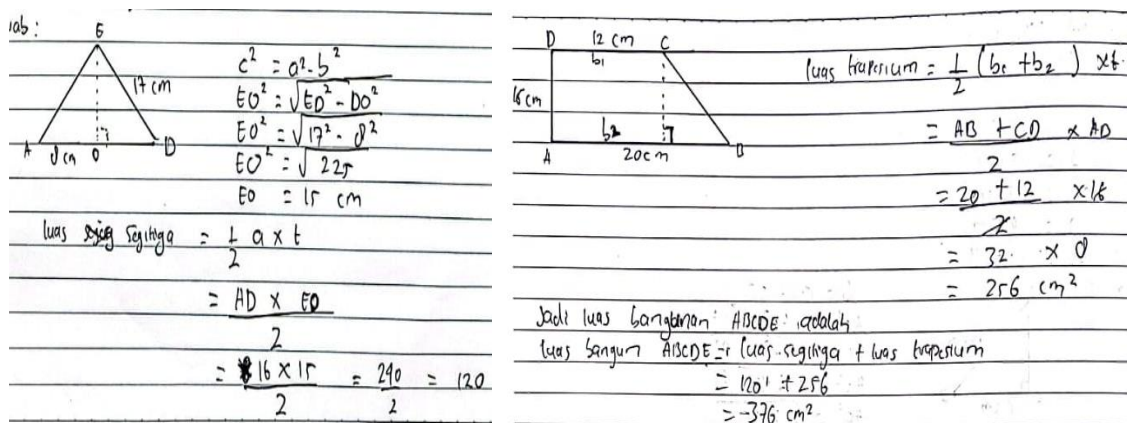 ab:
E
17 cm
A
8 cm
O
D
c² = a² - b²
EO² = √ED² - DO²
EO² = √17² - 8²
EO² = √225
EO = 15 cm
luas segitiga = 1/2 a x t
= AD x EO / 2
= 16 x 15 / 2 = 240/2 = 120
D
12 cm
C
b₁
16 cm
b2
A
20 cm
B
luas trapesium = 1/2 (b₁ + b₂) x t
= AB + CD / 2 x AD
= 20 + 12 / 2 x 16
= 32 x 8
= 256 cm²
Jadi luas bangunan ABCDE adalah
luas bangun ABCDE = luas segitiga + luas trapesium
= 120 + 256
= 376 cm²